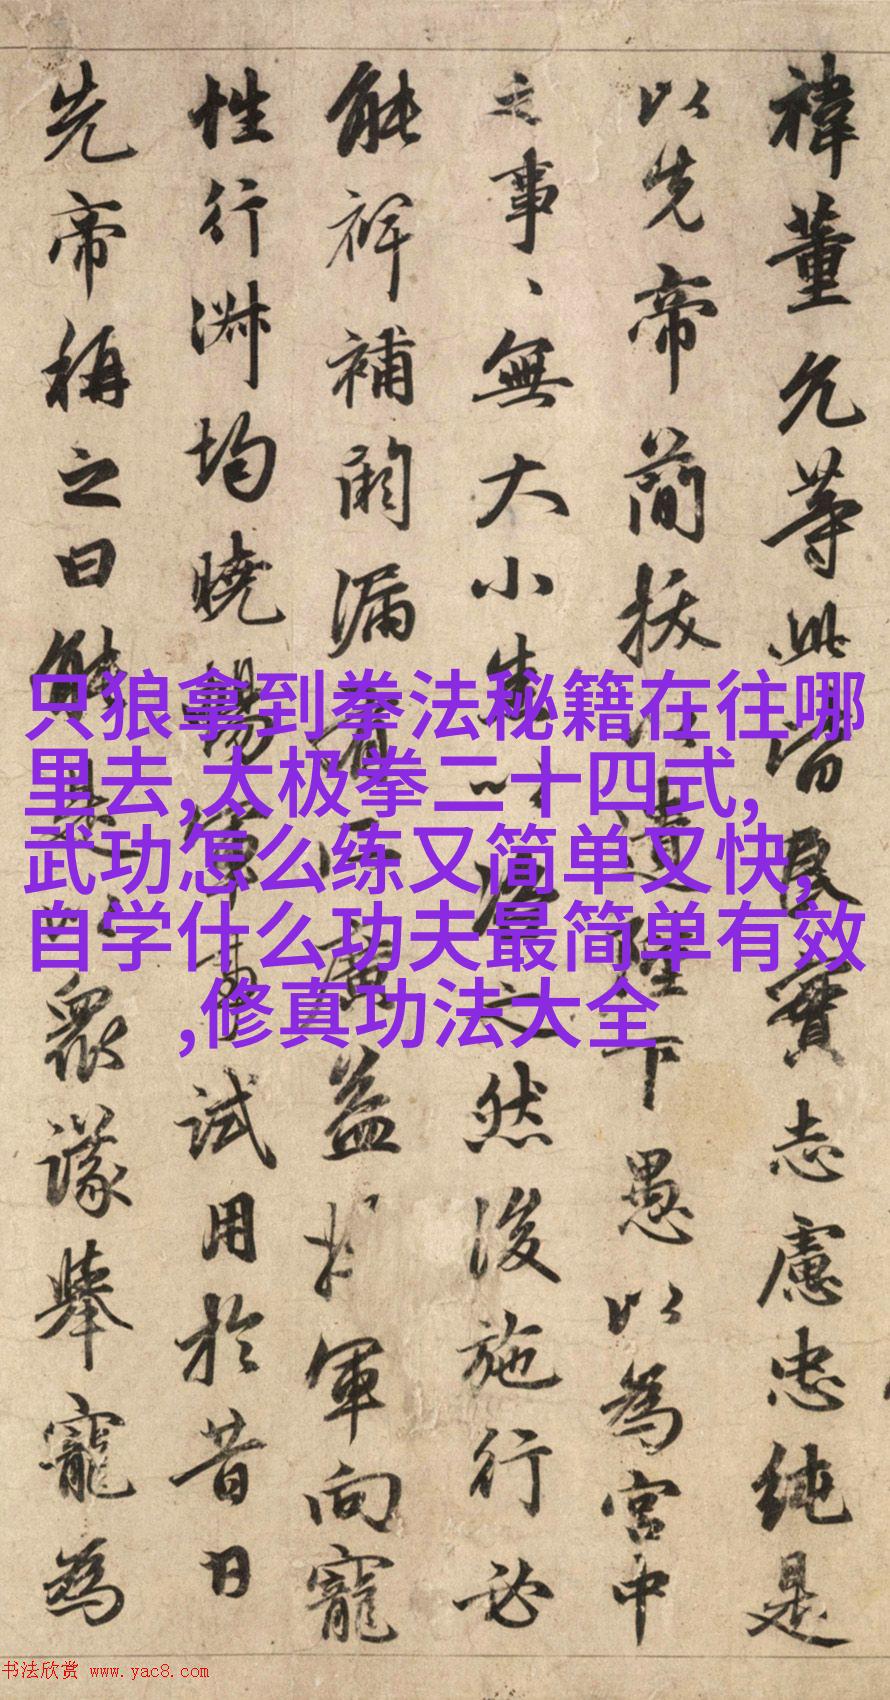 禕董允等此皆良實志慮忠純是
以先帝簡拔以遺陛下愚以為宮中
之事、無大小悉以咨之然後施行必
能裨補闕漏有所廣益將軍向寵
性行淑均曉暢軍事試用於昔日
先帝稱之曰能是以眾議舉寵為
只狼拿到拳法秘籍在往哪
里去,太极拳二十四式,
武功怎么练又简单又快,
自学什么功夫最简单有效
,修真功法大全
书法欣赏 www.yac8.com